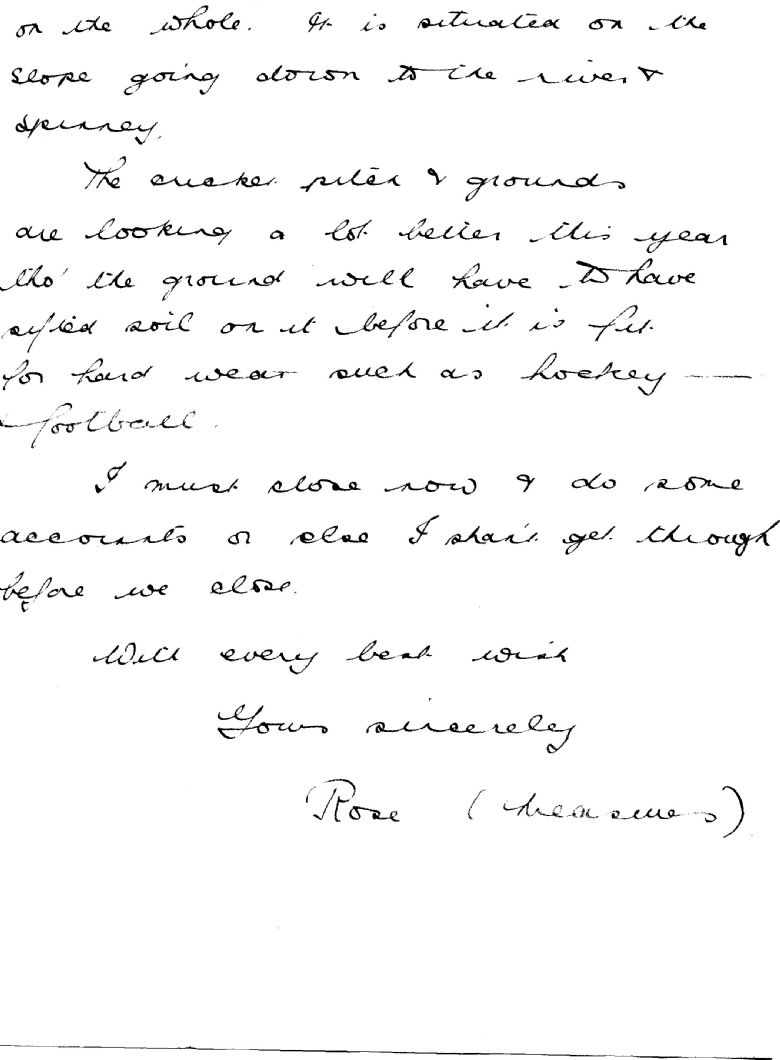 on the whole. It is situated on the
slope going down to the river &
spinney.
The cricket pitch & grounds
are looking a lot better this year
tho' the ground will have to have
sifted soil on it before it is fit
for hard wear such as hockey —
football.
I must close now & do some
accounts or else I shan't get through
before we close.
With every best wish
Yours sincerely
Rose (Measures)